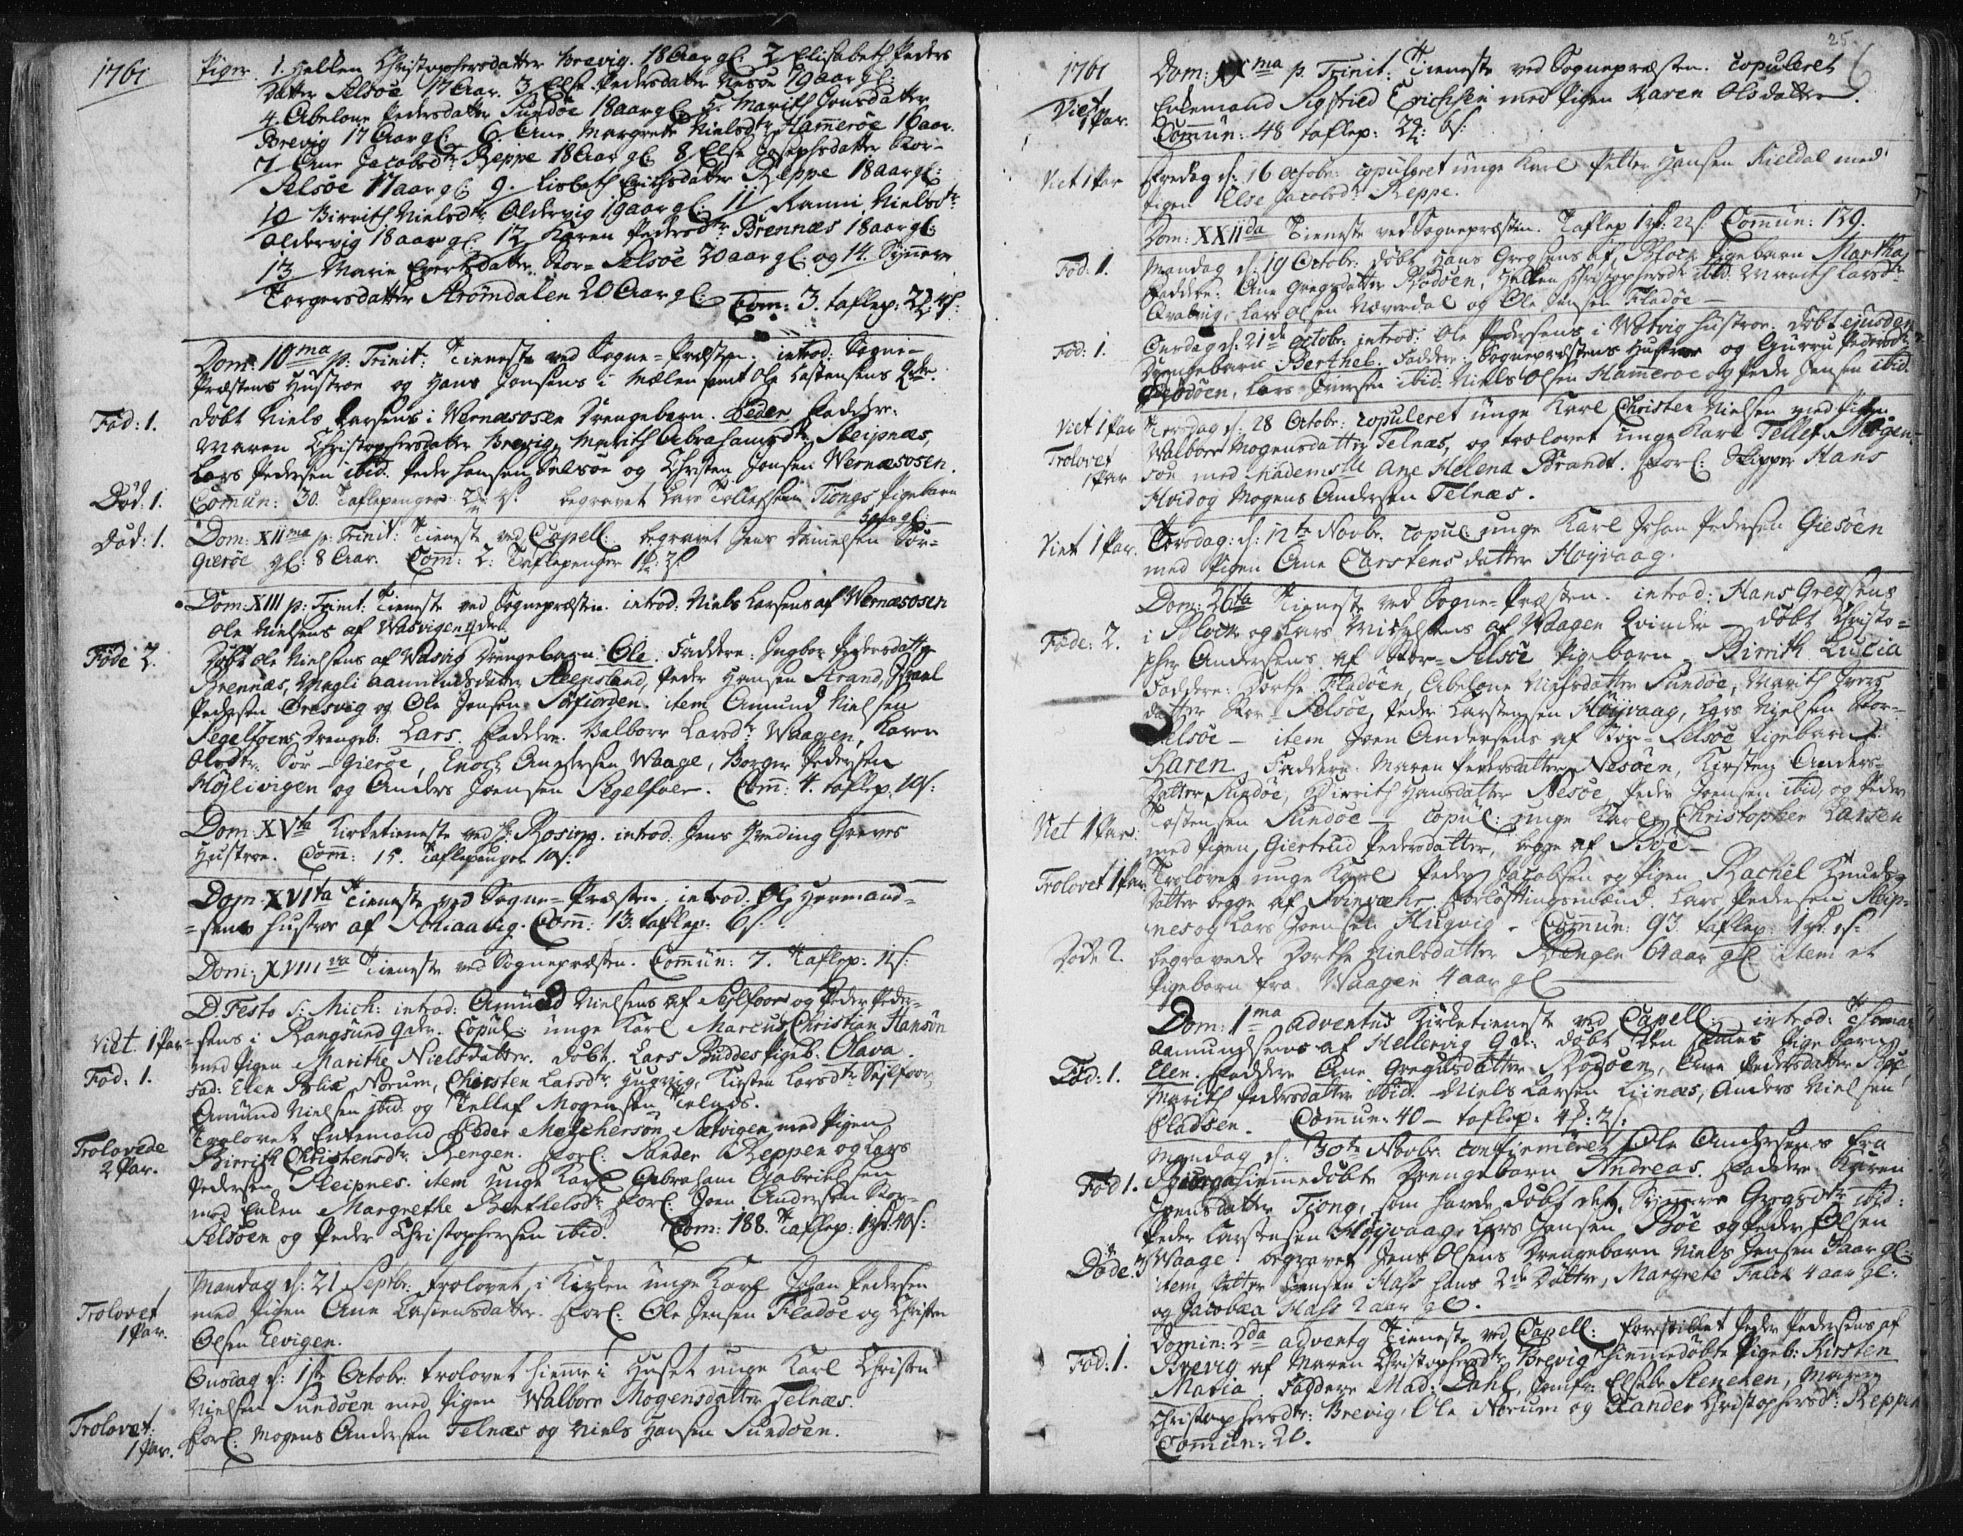 1761
Piger. 1. Hellen Christophersdatter Brevig. 18 Aar gl: 2 Elisabeth Peders
Datter Selsöe 17 Aar. 3 Else Pedersdatter Nesöe 19 aar gl:
4. Abelone Pedersdatter Sundöe 18 aar gl: 5. Marith Jonsdatter
Brevig 17 Aar gl: 6. Ane Margrete Nielsdtr Hameröe 16 aar.
7 Ane Jacobsdr Reppe 18 Aar gl: 8 Else Josephsdatter Stor-
Selsöe 17 aar gl: 9. Lisbeth Erichsdatter Reppe 18 aar gl:
10 Birrith Nielsdr Oldervig 19 aar gl: 11 Ranni Nielsdr
Oldervig 18 aar gl: 12 Karen Pedersdr Brennæs 18 aar gl:
13 Marie Evertsdatter Stor-Selsöe 30 aar gl: og 14. Synnere
Torgersdatter Strömdalen 20 Aar gl: Com: 3. taflep: 22
Dom: 10ma p. Trinit: Tieneste ved Sogne-Præsten. introd: Sogne-
Præstens Hustroe og Hans Jonsens i Mælen samt Ole Castensens Qdr.
Föd: 1. döbt Niels Larsens i Wernæsosen Drengebarn. Peder Faddere:
Maren Christophersdatter Brevig, Marith Abrahamsdr Sleipnæs,
Lars Pedersen ibid. Peder Hansen Selsöe og Christen Jonsen Wernæsosen.
Död: 1. Comun: 30. Taflepenger begravet Lars Tollefsens Tiongs Pigebarn
5 aar gl:
Död: 1. Dom: XIIma p: Trinit: Tieneste ved Capell: begravet Jens Sör-
Gieröe gl: 8 Aar. Com: 2: Taflepenger
Dom: XIII p: Trinit: Tieneste ved Sognepræsten. introd: Niels Larsens af Wernæsosen
Ole Nielsens af Wasvigen qdr.
Föde 2. Döbt Ole Nielsens af Wasvig Drengebarn. Ole. Faddere: Ingbor Pedersdatter
Brennæs, Magli Aamundsdatter Steensland, Peder Hansen Strand,
Pedersen Oresvig og Ole Jonsen Sörfiorden. item Amund Nielsen
Segelfoers Drengeb: Lars. Faddere. Valborr Larsdr Waagen, Karen
Olsdtr Sör-Gieröe, Enoch Andersen Waage, Borger Pedersen
Höglivigen og Anders Joensen Segelfoer. Com: 4. taflep. 10s:
Dom: XVta Kirketieneste ved Hr Rosing. introd: Jens Greves
Hustroe. Com: 15. Taflepenger 10s:
Dom: XVIta Tieneste ved Sogne-Præsten. introd. Ole Hermand-
sens hustroe af Com: 13. taflep: 6s.
Dom: XVIIIva Tieneste ved Sognepræsten. Comun: 7. Taflep: 11s:
D. Festo S: Mich: introd: Amund Nielsens af Sejlfoer og Peder Peder-
Viet. 1 Par- sens i Rangsund qdr. Copul: unge Karl Marcus Christian Hansön
med Pigen Marithe Nielsdatter. döbt. Lars Buddes Pigeb: Olava.
Föd: 1. Fad: Elen Norum, Chirsten Larsdr Hugvig, Kirsten Larsdr Sejlfoer,
Amund Nielsen ibid. og Tellef Mogensen Telnæs.
Trolovede 2 Par. Trolovet Enkemand Peder Melchersön Sætvigen med Pigen
Birrith Christensdr Rengen. Forl: Sander Reppen og Lars
Pedersen Sleipnes. item unge Karl Abraham Gabrielsen
med Enken Margrethe Berthelsdr Forl: Joen Andersen Stor-
Selsöen og Peder Christophersen ibid. Com: 188. Taflep:
Mandag d: 21 Septbr: trolovet i Kirken unge Karl Johan Pedersen
Trolovet 1 Par. med Pigen Ane Castensdatter. Forl: Ole Jensen Fladöe og Christen
Olsen Eevigen.
Onsdag d: Octobr: trolovet hiemme i Huset unge Karl Christen
Nielsen Sundöen med Pigen Walborr Mogensdatter Telnæs.
Trolovet: 1 Par. Forl: Mogens Andersen Telnæs og Niels Hansen Sundöen.
25
1761
Dom: XXma p. Trinit: Tieneste ved Sognepræsten. Copuleret
Viet 1 Par. Enkemand Sigfried Erichsen med Pigen Karen Olsdatter.
Comun: 48 taflep: 6s:
Viet 1 Par Fredag d: 16 Octobr: copuleret unge Karl Petter Hansen Kieldal med
Pigen Else Jacobsdr Reppe.
Dom: XXIIda Tieneste ved Sognepræsten. Taflep 22s Comun: 129.
Föd: 1. Mandag d: 19 Octobr: döbt Hans Gregsens af Block Pigebarn Martha
Faddere: Ane Gregsdatter Rödöen, Hellen Christophersdr ibid. Marith Larsdr
Lars Olsen Næverdal og Ole Jensen Fladöe-
Föd: 1. Onsdag d: 21de Octobr: introd: Ole Pedersens i Wætvig Hustroe. Döbt ejusdem
Drengebarn Berthel. Faddere: Sognepræstens Hustroe og Gurru Pedersdr
Rödöen, Lars Iversen ibid. Niels Olsen Hameroe og Peder Jensen ibid.
Viet 1 Par Torsdag d: 28 Octobr: copuleret unge Karl Christen Nielsen med Pigen
Trolovet 1 Par Walborr Mogensdatter Telnæs, og trolovet unge Karl Tellef Mogen-
sön med Mademslle Ane Helena Brandt. Forl: Skipper Hans
Hvid og Mogens Andersen Telnæs.
Viet 1 Par. Torsdag: d: 12te Novbr: Copul: unge Karl Johan Pedersen Giesöen
med Pigen Ane Carstens datter Höyvaag.
Dom: 26ta Tieneste ved Sogne-Præsten. introd: Hans Gregsens
Föde: 2. i Block og Lars Michelsens af Waagen Qvinder - döbt Christo-
pher Andersens af Stor-Selsöe Pigebarn Birrith Lucia
Faddere: Dorthe Fladöen, Abelone Nielsdatter Sundöe, Marith Ivers
datter Stor-Selsöe, Peder Carstensen Höyvaag, Lars Nielsen Stor-
Selsöe - item Joen Andersens af Stor-Selsöe Pigebarn
Karen. Faddere. Maren Pedersdatter Nesöen, Kirsten Anders-
datter Sundöe, Birrith Hansdatter Nesöe, Peder Joensen ibid, og Peder
Viet 1 Par. Tostensen Sundöe - Copul: unge Karl Christopher Larsen
med Pigen Giertrud Pedersdatter, begge af Böe-
Trolovet 1 Par. Trolovet unge Karl Peder Jacobsen og Pigen Rachel Knuds-
datter begge af Svinvær. Forlöftingsmænd. Lars Pedersen Sleip-
nes og Lars Joensen Hugvig - Comun: 93. taflep:
Döde 2. begravede Dorthe Nielsdatter Rengen 64 aar gl item et
Pigebarn fra Waagen 4 aar gl
Dom: 1ma Adventus Kirketieneste ved Capell: introd: Thomas
Aamundsens af Hellervig Qv: döbt den samme Pigebarn
Föd: 1. Elen. Faddere Ane Gregusdatter Rödöen, Ane Pedersdatter
Marith Pedersdatter ibid. Niels Larsen Liinæs, Anders Nielsen
Pladsen. Comun: 40 - taflep:
Mandag d: 30te Novbr: confirmeret Ole Andersens fra
Föd 1. hiemmedöbte Drengebarn Andreas. Faddere Karen
Joensdatter Tiong, som havde döbt det, Synnere Gregsdtr ibid:
Peder Carstensen Höyvaag, Lars Jonsen Böe og Peder Olsen
Döde: 3 Waage. begravet Jens Olsens Drengebarn Niels Jensen 3 aar gl:
item Petter Jensen Hass hans 2de Döttre, Margrete Falck 4 aar gl:
og Jacobæa Hass 2 aar gl.
Domin: 2da adventq Tieneste ved Capell: forestillet Peder Pedersens af
Föd: 1. Brevig af Maren Christophersdr Brevig hiemmedöbte Pigeb: Kirsten
Maria. Faddere Mad: Dahl, Jomfr: Elsebe Stenehen, Maren
Christophersdr: Brevig, Ole Norum og Xander Christophersdr: Reppen
Comun: 20.